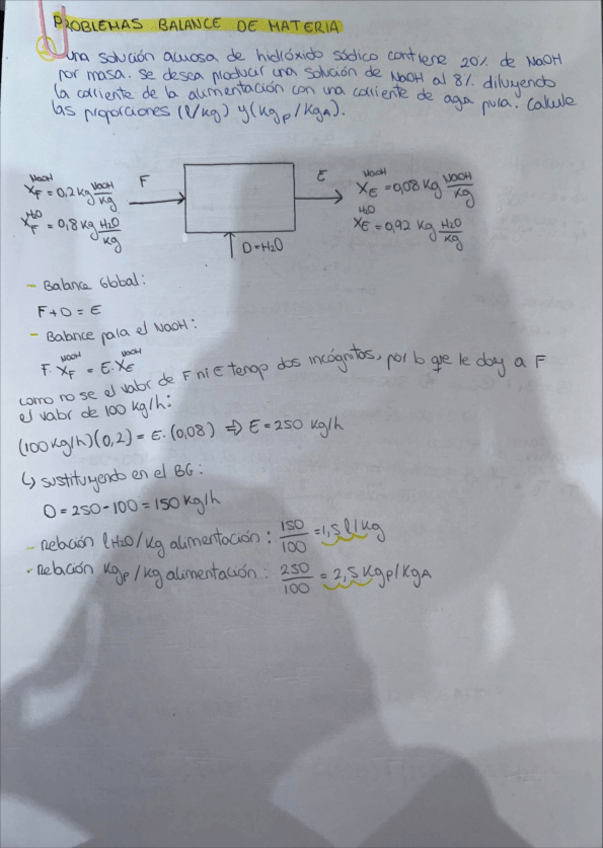 PROBLEMAS BALANCE DE MATERIA
Una solución acuosa de hidróxido sódico contiene 20% de NaOH
por masa. Se desea producir una solución de NaOH al 8% diluyendo
la corriente de la alimentación con una corriente de agua pura. Calcule
las proporciones (l/kg) y (Kgp/KgA).
X_F^NaOH = 0,2 Kg NaOH/kg
X_F^H2O = 0,8 Kg H2O/kg
F
E
X_E^NaOH = 0,08 Kg NaOH/Kg
X_E^H2O = 0,92 Kg H2O/Kg
D=H2O
- Balance Global:
F+D = E
- Balance para el NaOH:
F·X_F^NaOH = E·X_E^NaOH
como no se el valor de F ni E tengo dos incógnitas, por lo que le doy a F
el valor de 100 Kg/h:
(100 Kg/h)(0,2) = E·(0,08) ⇒ E = 250 Kg/h
↳ sustituyendo en el BG:
D = 250-100 = 150 Kg/h
- Relación lH2O/Kg alimentación: 150/100 = 1,5 l/Kg
- Relación Kgp/kg alimentación: 250/100 = 2,5 Kgp/KgA